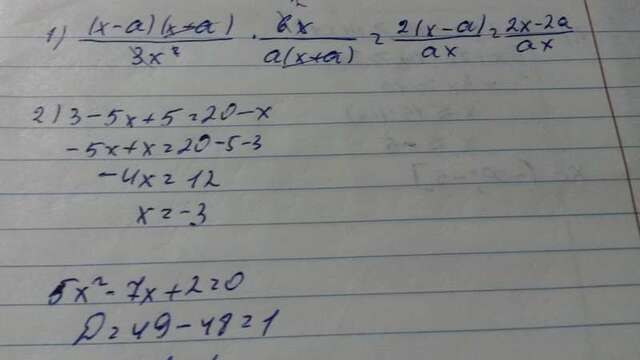 1) (x-a)(x+a)/3x² · 6x/a(x+a) = 2(x-a)/ax = 2x-2a/ax
2) 3-5x+5=20-x
-5x+x=20-5-3
-4x=12
x=-3
5x²-7x+2=0
D=49-48=1